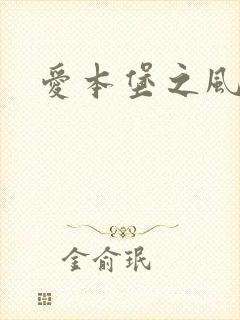 愛本堡之風
金俞珉